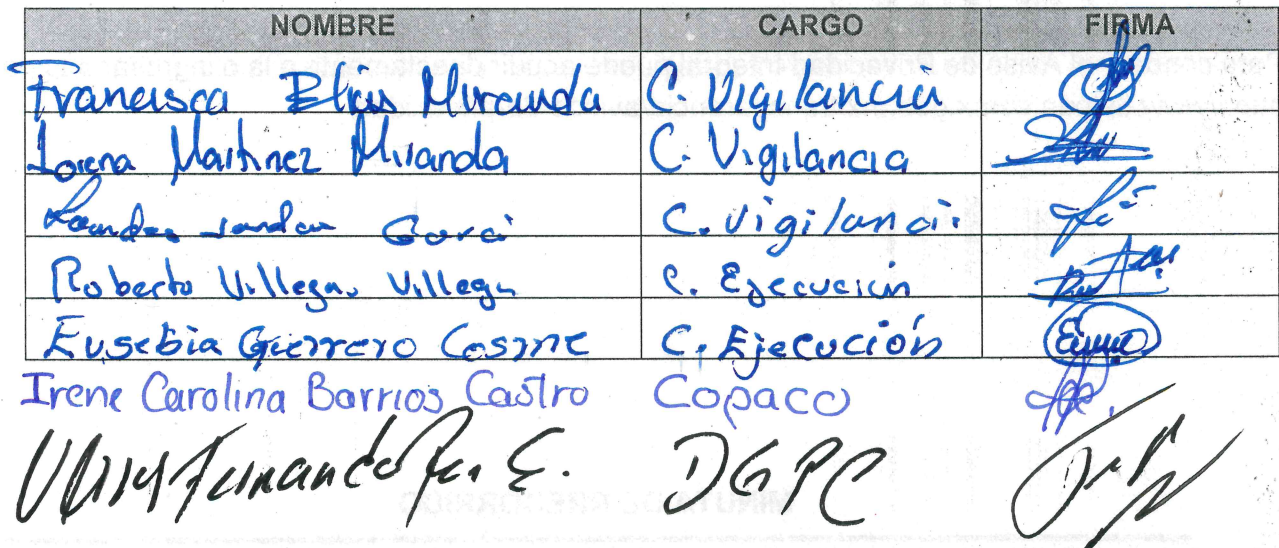 NOMBRE CARGO FIRMA
Francisca Elias Miranda C. Vigilancia
Lorena Martinez Miranda C. Vigilancia
C. Vigilanci.
Roberto Villega. Villega C. Ejecución
Eusebia Guerrero Cosme C. Ejecución
Irene Carolina Barrios Castro Copaco
Fernando DGPC